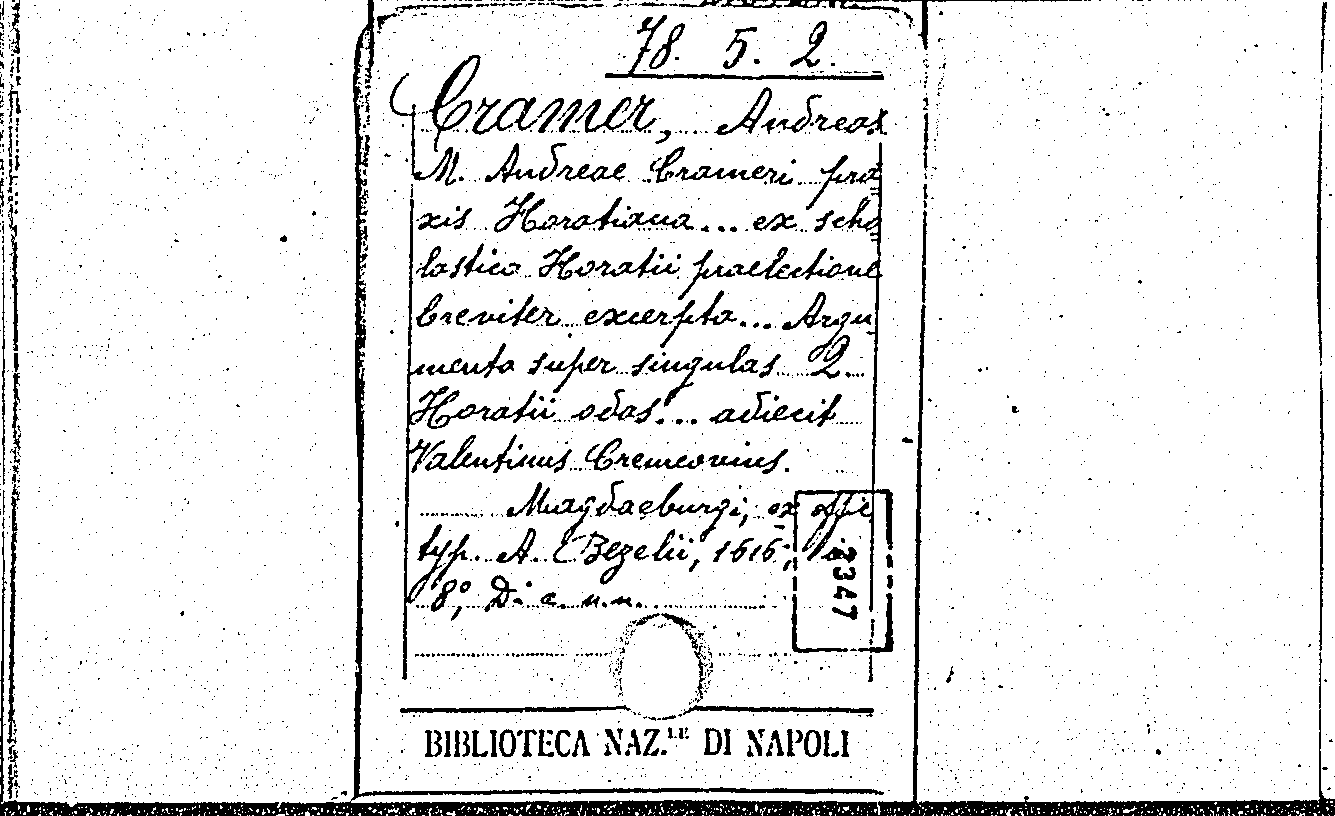 78. 5. 2.
Cramer, Andreas
M. Andreae Crameri pra=
xis Horatiana... ex scho=
lastica Horatii praelectione
breviter excerpta... Argu=
menta super singulas Q.
Horatii odas... adiecit
Valentinus Cremcovius.
Magdaeburgi, ex offi.
typ. A. Bezelii, 1616; in
8°, Di c. n.n.
2347
BIBLIOTECA NAZ.LE DI NAPOLI